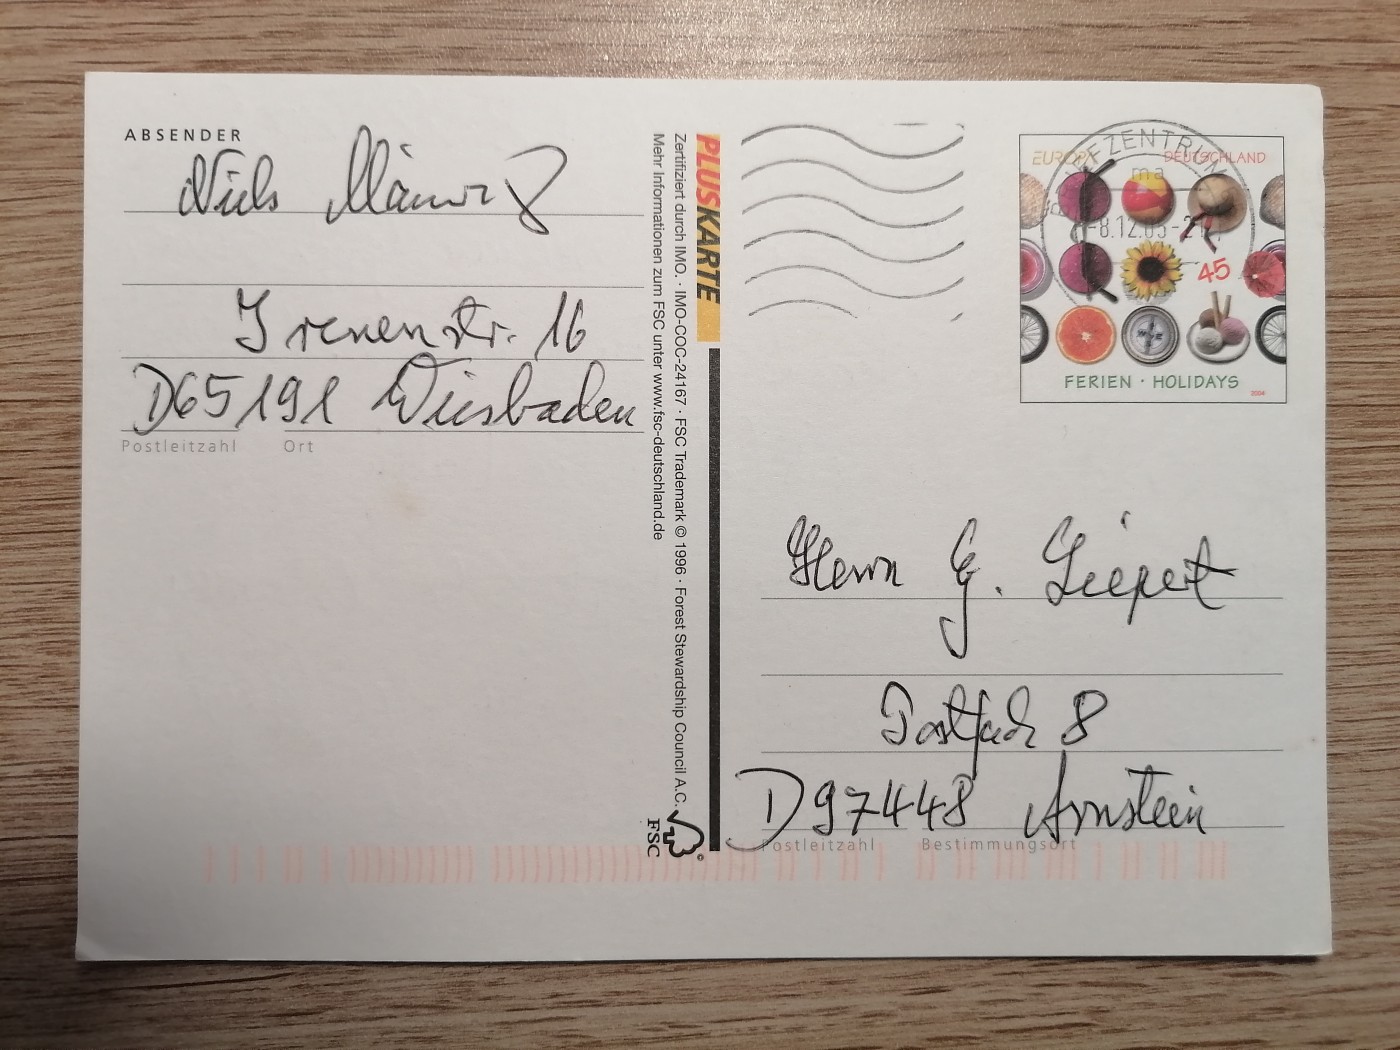 ABSENDER
Niels
Irenenstr. 16
D65191 Wiesbaden
Postleitzahl Ort
PLUSKARTE
Zertifiziert durch IMO. · IMO-COC-24167 · FSC Trademark © 1996 · Forest Stewardship Council A.C.
Mehr Informationen zum FSC unter www.fsc-deutschland.de
FSC
EUROPA DEUTSCHLAND
45
FERIEN · HOLIDAYS
2004
FZENTRUM
Herrn G. Liepert
Postfach 8
D97448 Arnstein
Postleitzahl Bestimmungsort